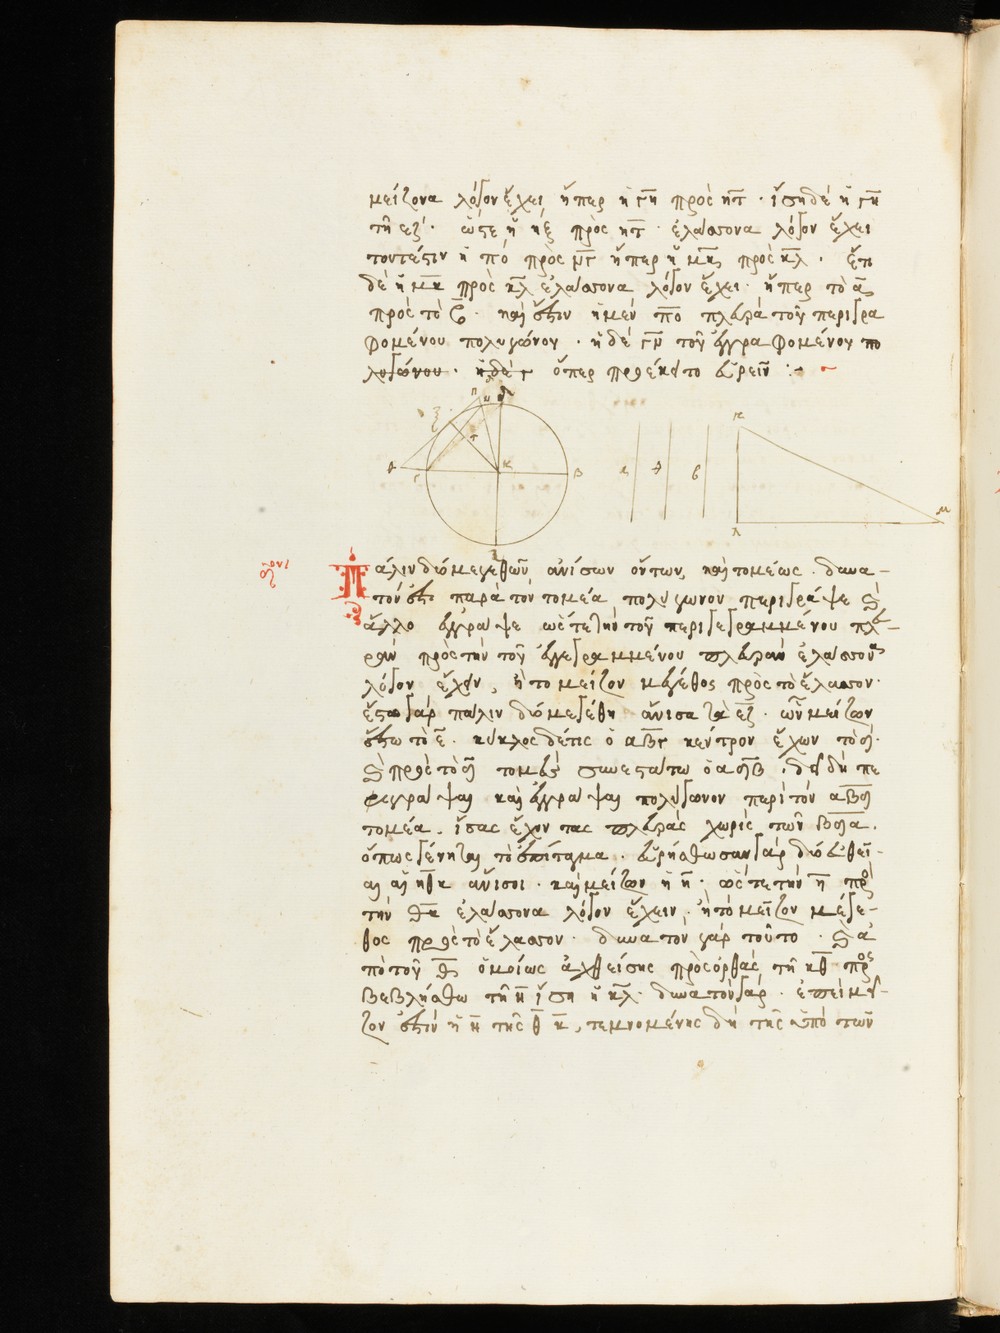 μείζονα λόγον ἔχει ἤπερ ἡ γη πρὸς ητ · ἴση δὲ ἡ γη
τῆ εξ · ὥστε ἡ ηξ πρὸς ητ · ἐλάσσονα λόγον ἔχει
τουτέστιν ἡ πό πρὸς μγ ἤπερ ἡ μκ πρὸς κλ · ἔτι
δὲ ἡ μκ πρὸς κλ ἐλάσσονα λόγον ἔχει · ἤπερ τὸ α
πρὸς τὸ β · καὶ ἔστιν ἡ μέν πο πλευρὰ τοῦ περιγρα
φομένου πολυγώνου · ἡ δὲ γν τοῦ ἐγγραφομένου πο
λυγώνου · ὅπερ προέκειτο εὑρεῖν :~
Πάλιν δύο μεγεθῶν ἀνίσων ὄντων, καὶ τομέως · δυνα-
τόν ἐστι παρὰ τὸν τομέα πολύγωνον περιγράψαι καὶ
ἄλλο ἐγγράψαι ὥστε τὴν τοῦ περιγεγραμμένου πλευ-
ρὰν πρὸς τὴν τοῦ ἐγγεγραμμένου πλευρὰν ἐλάσσονα
λόγον ἔχειν, ἢ τὸ μεῖζον μέγεθος πρὸς τὸ ἔλασσον ·
ἔστω γὰρ πάλιν δύο μεγέθη ἄνισα τὰ εζ · ὧν μεῖζον
ἔστω τὸ ε · κύκλος δέ τις ὁ αβγ κέντρον ἔχων τὸ δ ·
καὶ πρὸς τὸ δ τομεὺς συνεστάτω ὁ αδβ · δεῖ δὴ πε
ριγράψαι καὶ ἐγγράψαι πολύγωνον περὶ τὸν αβδ
τομέα · ἴσας ἔχον τὰς πλευρὰς χωρὶς τῶν βδα ·
ὅπως γένηται τὸ ἐπίταγμα · εὑρήσθωσαν γὰρ δύο εὐθεῖ-
αι αἱ ηθκ ἄνισοι · καὶ μείζων ἡ η · ὥστε τὴν η πρὸς
τὴν θκ ἐλάσσονα λόγον ἔχειν · ἢ τὸ μεῖζον μέγε-
θος πρὸς τὸ ἔλασσον · δυνατὸν γὰρ τοῦτο · καὶ ἀ
πὸ τοῦ θ ὁμοίως ἀχθείσης πρὸς ὀρθάς τῆ κθ προσ
βεβλήσθω τῆ η ἴση ἡ κλ · δυνατὸν γάρ · ἐπεὶ μεί-
ζον ἐστίν ἡ η τῆς θ κ, τεμνομένης δὴ τῆς ὑπὸ τῶν